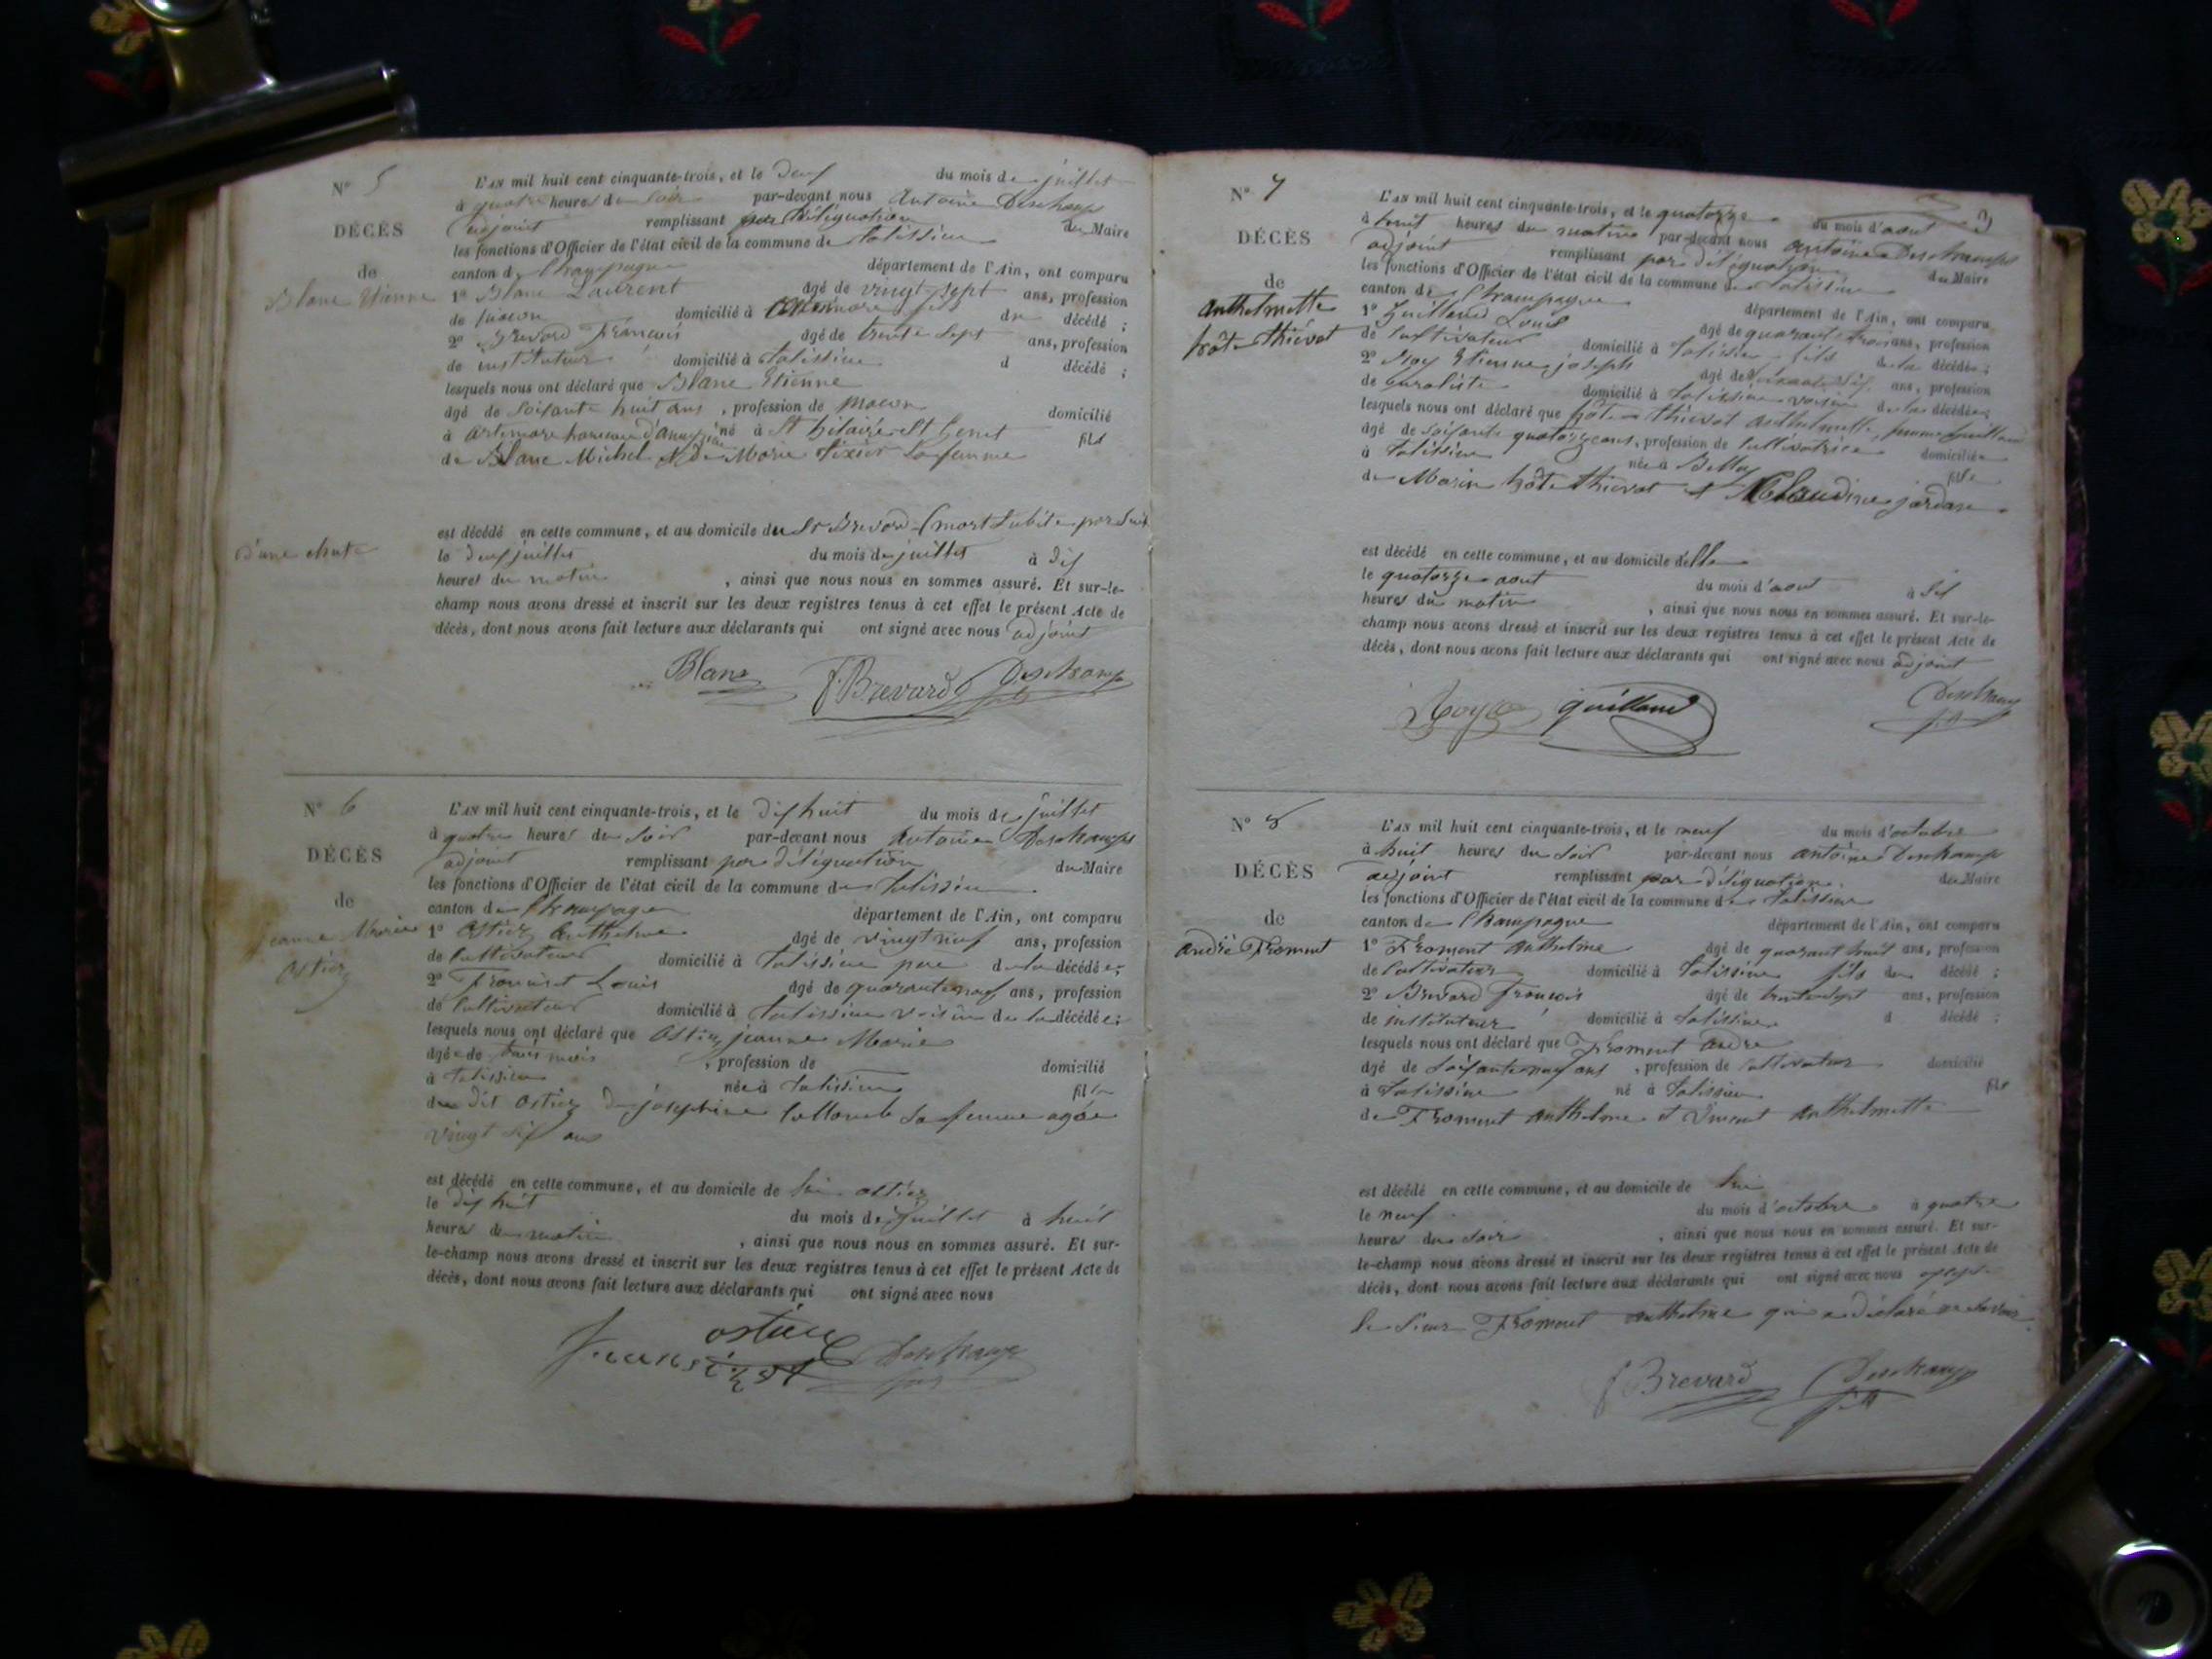 N° 5
DÉCÈS
de
Blanc Etienne
L'AN mil huit cent cinquante-trois, et le deux du mois de juillet
à quatre heures du soir par-devant nous Antoine Deschamps
adjoint remplissant par délégation du Maire
les fonctions d'Officier de l'état civil de la commune de talissieu
canton de Champagne département de l'Ain, ont comparu
1° Blanc Laurent âgé de vingt sept ans, profession
de maçon domicilié à Artemare fils du décédé ;
2° Brevard François âgé de trente sept ans, profession
de instituteur domicilié à talissieu d décédé ;
lesquels nous ont déclaré que Blanc Etienne
âgé de soixante huit ans, profession de maçon domicilié
à artemare hameau d' né à St hilaire St Genet fils
de Blanc Michel et de Marie sa femme
est décédé en cette commune, et au domicile du Sr Brevard (mort subite par suite
d'une chute
le deux juillet du mois de juillet à dix
heures du matin, ainsi que nous nous en sommes assuré. Et sur-le-
champ nous avons dressé et inscrit sur les deux registres tenus à cet effet le présent Acte de
décès, dont nous avons fait lecture aux déclarants qui ont signé avec nous adjoint
Blanc f. Brevard Deschamps
N° 6
DÉCÈS
de
jeanne Marie
Ostier
L'AN mil huit cent cinquante-trois, et le dix huit du mois de juillet
à quatre heures du soir par-devant nous Antoine Deschamps
adjoint remplissant par délégation du Maire
les fonctions d'Officier de l'état civil de la commune de talissieu
canton de Champagne département de l'Ain, ont comparu
1° Ostier Anthelme âgé de vingt neuf ans, profession
de Cultivateur domicilié à talissieu pere de la décédée ;
2° Louis âgé de quarante neuf ans, profession
de Cultivateur domicilié à talissieu voisin de la décédée ;
lesquels nous ont déclaré que Ostier jeanne Marie
âgée de trois mois, profession de domicilié
à talissieu née à talissieu fille
du dit Ostier & de joséphine sa femme agée
vingt six ans
est décédé en cette commune, et au domicile de lui ostier
le dix huit du mois de juillet à huit
heures du matin, ainsi que nous nous en sommes assuré. Et sur-
le-champ nous avons dressé et inscrit sur les deux registres tenus à cet effet le présent Acte de
décès, dont nous avons fait lecture aux déclarants qui ont signé avec nous
ostier
Deschamps
3
N° 7
DÉCÈS
de
Anthelmette
hôte thiévot
L'AN mil huit cent cinquante-trois, et le quatorze du mois d'aout
à huit heures du matin par-devant nous Antoine Deschamps
adjoint remplissant par délégation du Maire
les fonctions d'Officier de l'état civil de la commune de talissieu
canton de Champagne département de l'Ain, ont comparu
1° Guilland Louis âgé de quarante trois ans, profession
de Cultivateur domicilié à talissieu fils de la décédée ;
2° Roy Etienne joseph âgé de ans, profession
de buraliste domicilié à talissieu voisin de la décédée ;
lesquels nous ont déclaré que hôte thiévot Anthelmette femme Guilland
âgé de soixante quatorze ans, profession de Cultivatrice domiciliée
à talissieu née à Belley fille
de Marin hôte thiévot & Claudine jordan
est décédé en cette commune, et au domicile d'elle
le quatorze aout du mois d'aout à six
heures du matin, ainsi que nous nous en sommes assuré. Et sur-le-
champ nous avons dressé et inscrit sur les deux registres tenus à cet effet le présent Acte de
décès, dont nous avons fait lecture aux déclarants qui ont signé avec nous adjoint
Roy guilland Deschamps
N° 8
DÉCÈS
de
André Froment
L'AN mil huit cent cinquante-trois, et le neuf du mois d'octobre
à huit heures du soir par-devant nous antoine Deschamps
adjoint remplissant par délégation du Maire
les fonctions d'Officier de l'état civil de la commune de talissieu
canton de Champagne département de l'Ain, ont comparu
1° Froment Anthelme âgé de quarant huit ans, profession
de Cultivateur domicilié à talissieu fils du décédé ;
2° Brevard françois âgé de trente sept ans, profession
de instituteur domicilié à talissieu d décédé ;
lesquels nous ont déclaré que Froment andré
âgé de soixante neuf ans, profession de Cultivateur domicilié
à talissieu né à talissieu fils
de Froment Anthelme & Vincent Anthelmette
est décédé en cette commune, et au domicile de lui
le neuf du mois d'octobre à quatre
heures du soir, ainsi que nous nous en sommes assuré. Et sur-
le-champ nous avons dressé et inscrit sur les deux registres tenus à cet effet le présent Acte de
décès, dont nous avons fait lecture aux déclarants qui ont signé avec nous excepté
le Sieur Froment anthelme qui a déclaré ne savoir
f Brevard Deschamps